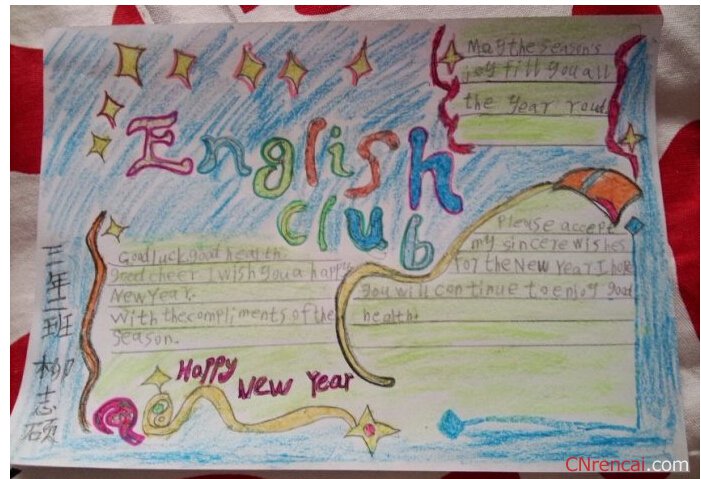 May the season's
joy fill you all
the year roud
English
club
Good luck,good health.
good cheer I wish you a happy
New Year.
With the compliments of the
Season.
Please accept
my sincere wishes
for the New Year I hope
you will continue to enjoy good
health!
Happy
New Year
三年二班 柳志硕
CNrencai.com